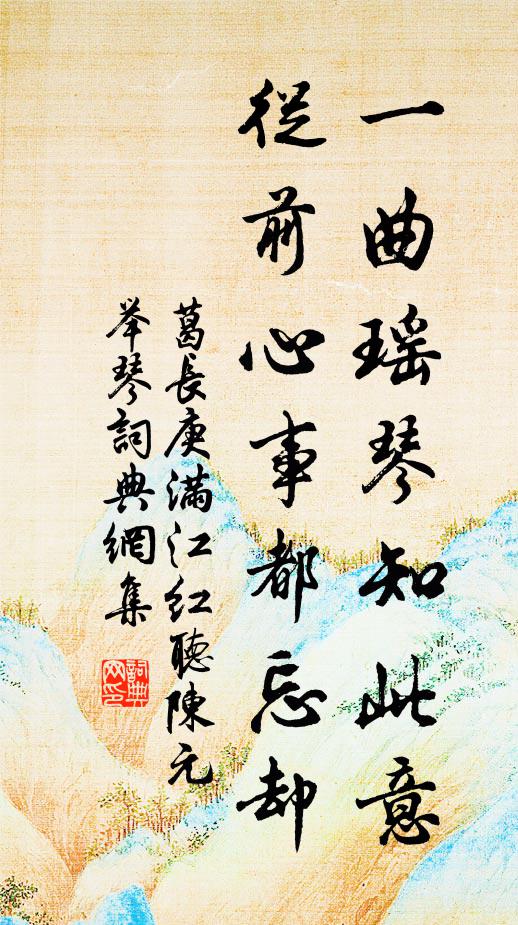 一曲瑶琴知此意
從前心事都忘却
葛長庚满江红聽陳元
举琴詞典網集
詞典网印